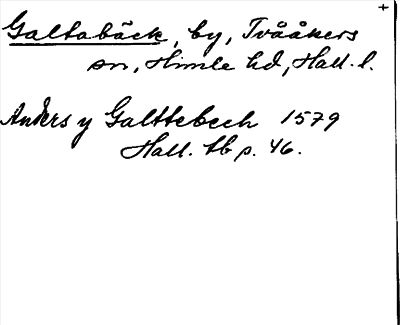 +
Galtabäck, by, Tvååkers
sn, Himle hd, Hall. l.
Anders y Galttebech 1579
Hall. tb p. 46.